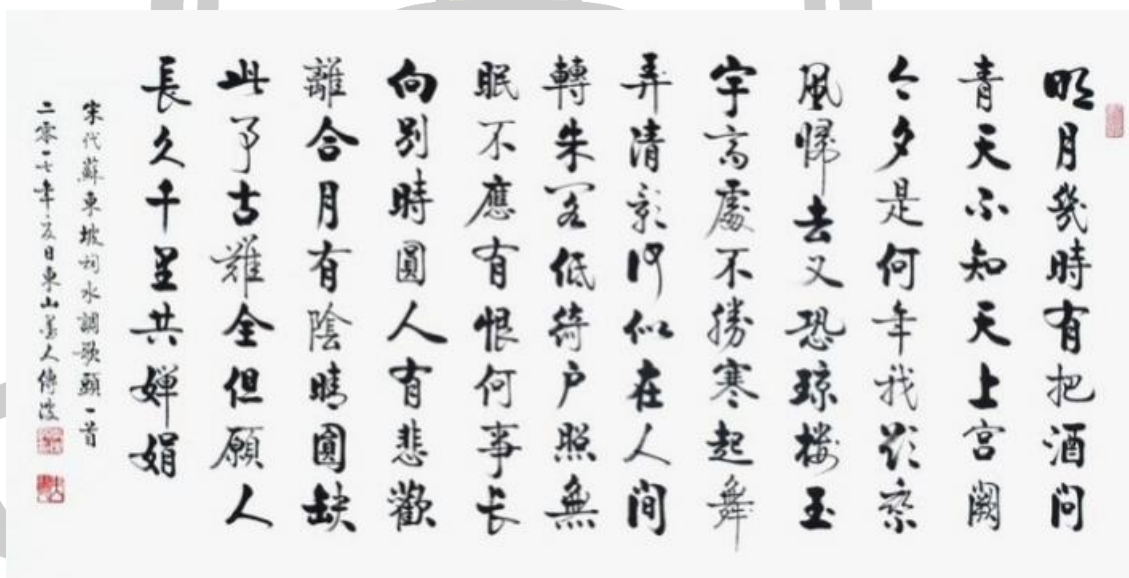 明月幾時有把酒問
青天不知天上宮闕
今夕是何年我欲乘
風歸去又恐琼楼玉
宇高處不勝寒起舞
弄清影何似在人間
轉朱閣低綺户照無
眠不應有恨何事长
向别時圓人有悲歡
離合月有陰晴圓缺
此事古難全但願人
長久千里共嬋娟
宋代蘇東坡詞水調歌頭一首
二零一七年夏日東山人